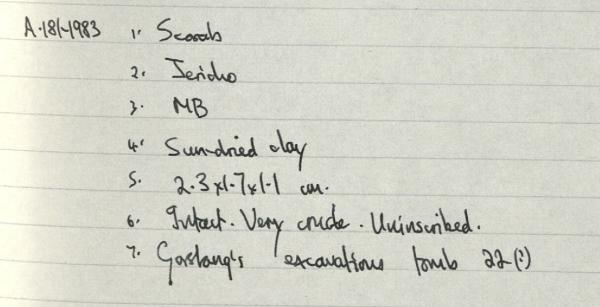 A.181-1983 1. Scarab
2. Jericho
3. MB
4. Sun-dried clay
5. 2.3x1.7x1.1 cm.
6. Intact. Very crude. Uninscribed.
7. Garstang's excavations tomb 22(?)